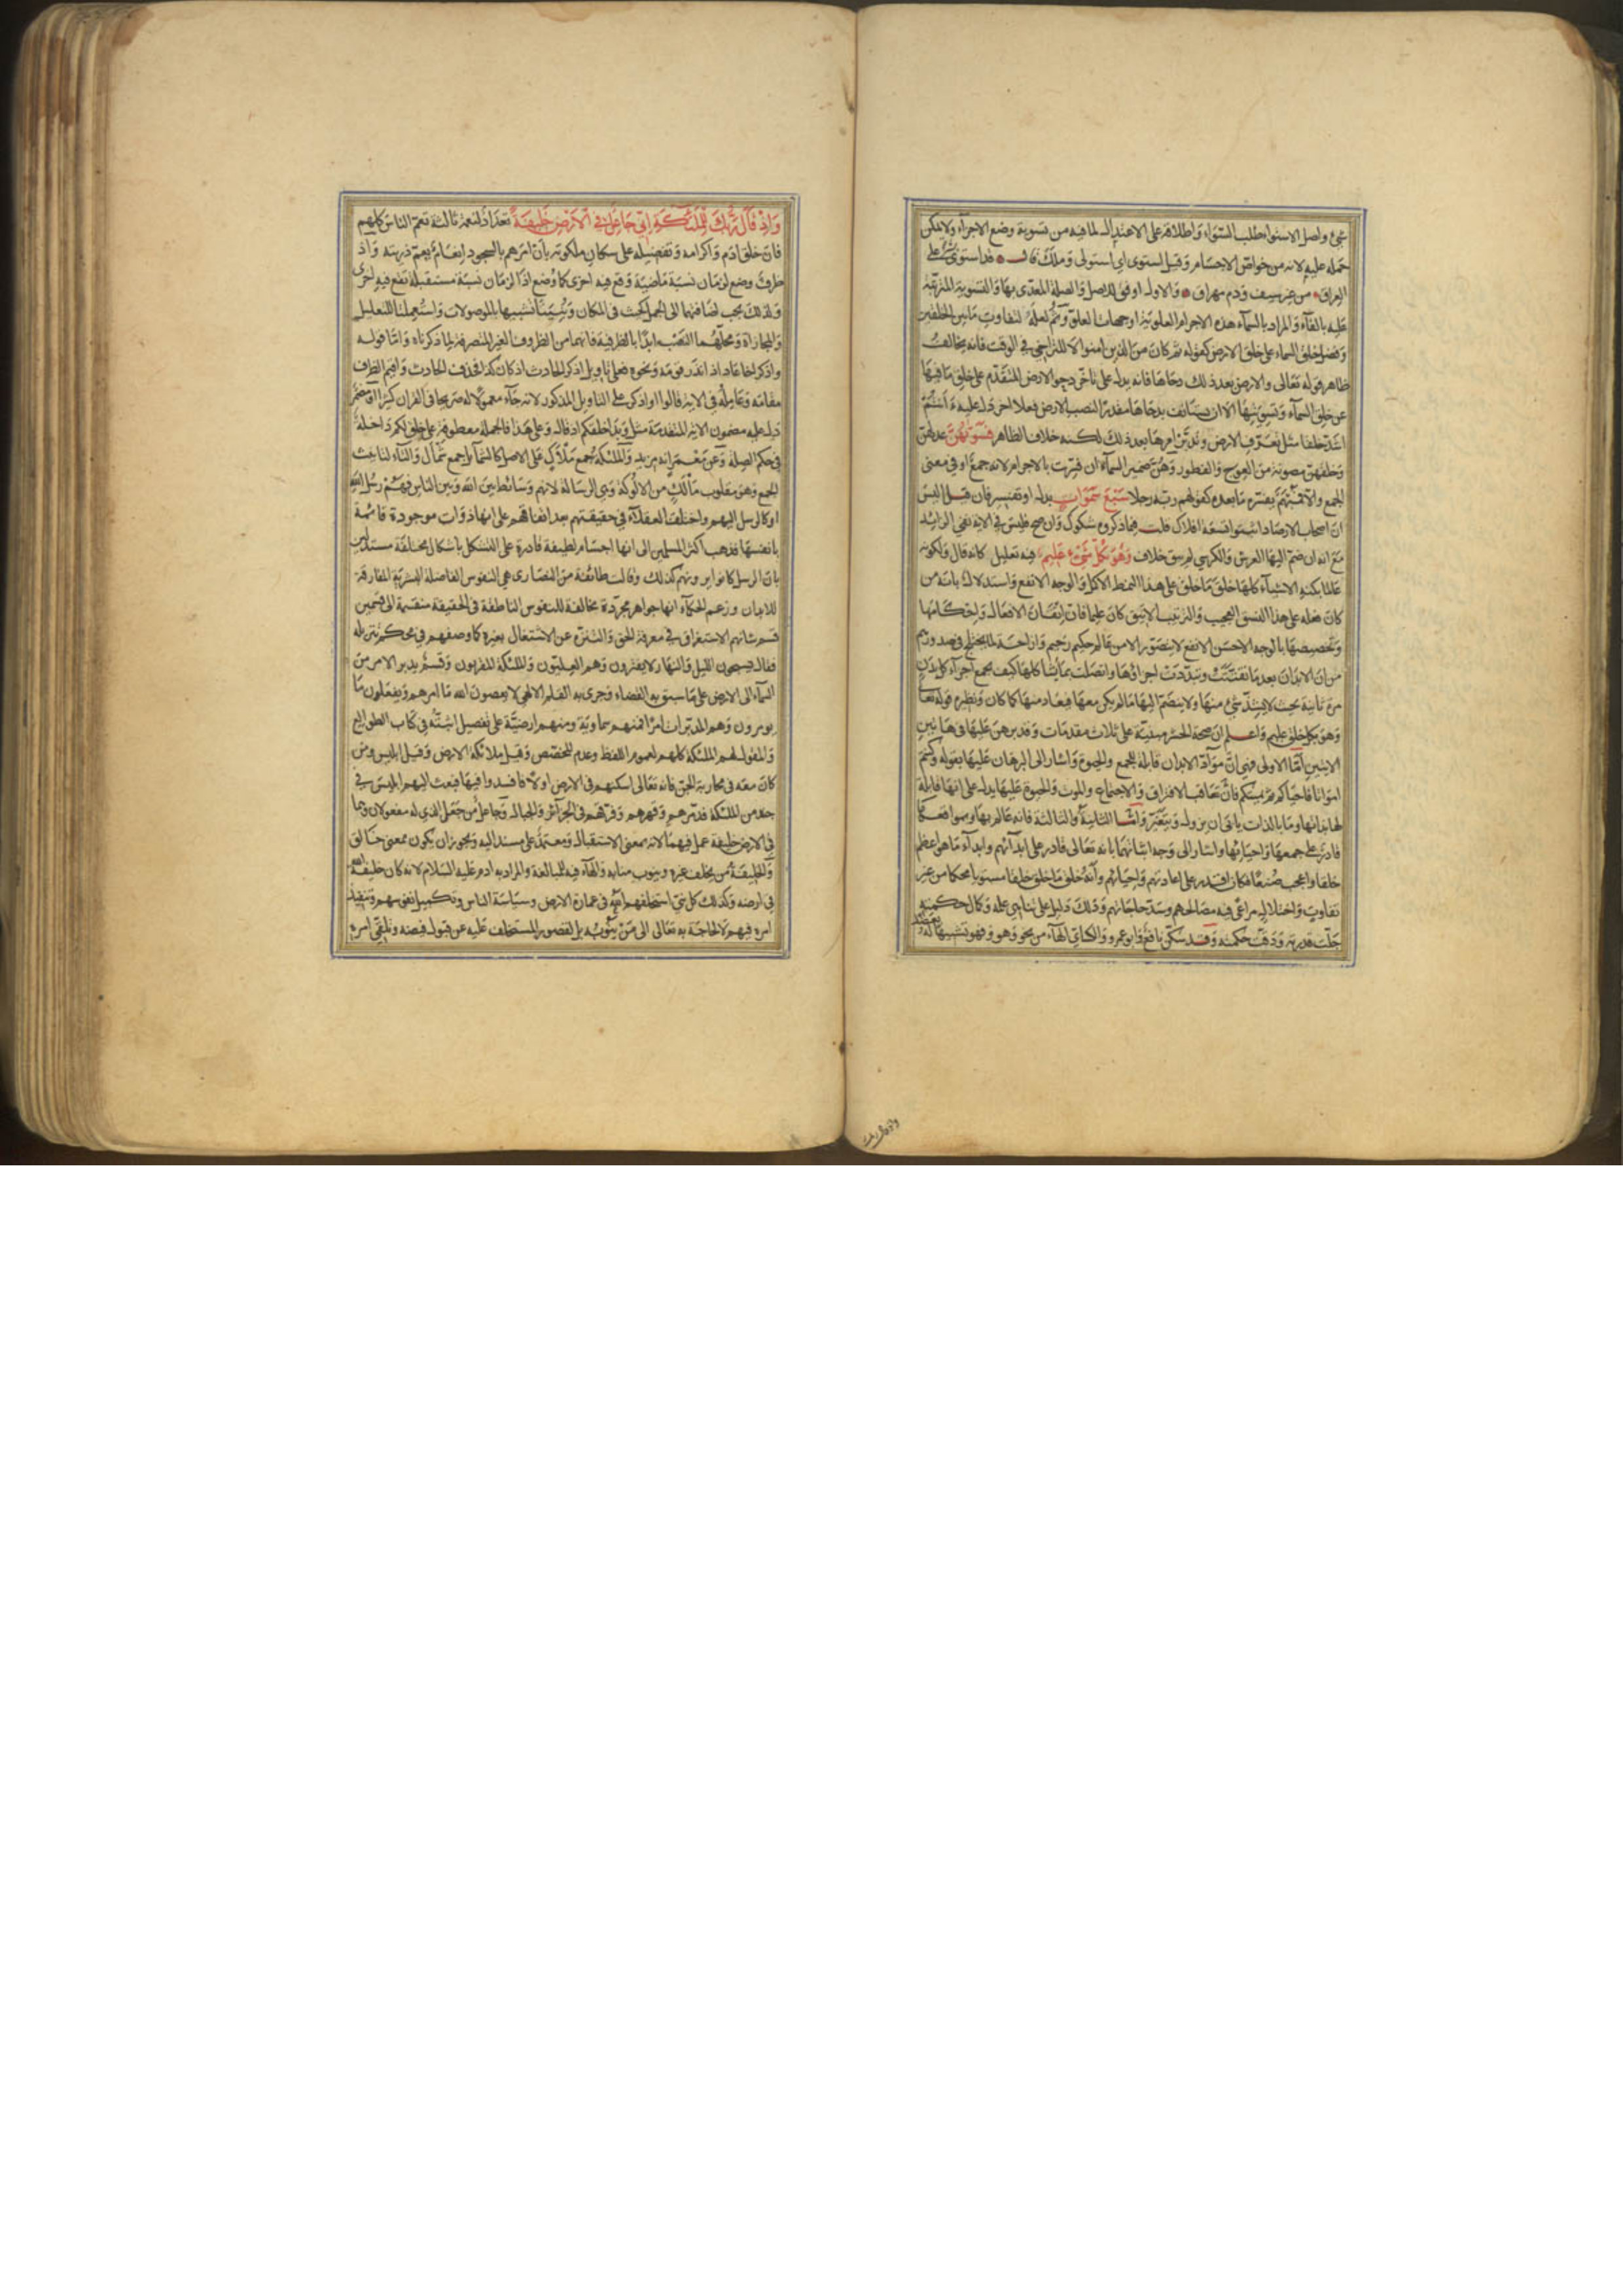 شئ واصل الاستواء طلب السواء واطلاقه على الاعتدال لما فيه من تسوية وضع الاجزاء ولا يمكن
حمله عليه لانه من خواص الاجسام وقيل استوى اى استولى وملك قال قد استوى بشر على
العراق من غير سيف ودم مهراق والاول اوفق للاصل والصلة المعدى بها والتسوية المترتبة
عليه بالفاء والمراد بالسماء هذه الاجرام العلوية او جهات العلو وثم لعله لتفاوت ما بين الخلقين
وفضل خلق السماء على خلق الارض كقوله ثم كان من الذين امنوا لا للتراخى فى الوقت فانه يخالف
ظاهر قوله تعالى والارض بعد ذلك دحاها فانه يدل على تاخر دحو الارض المتقدم على خلق ما فيها
عن خلق السماء وتسويتها الا ان يستانف بدحاها مقدرا لنصب الارض فعلا اخر دل عليه ءانتم
اشد خلقا مثل تعرف الارض وتدبر امرها بعد ذلك لكنه خلاف الظاهر فسويهن عدلهن
وخلقهن مصونة من العوج والفطور وهن ضمير السماء ان فسرت بالاجرام لانه جمع او فى معنى
الجمع والا فمبهم يفسره ما بعده كقولهم ربه رجلا سبع سموات بدل او تفسير فان قيل اليس
ان اصحاب الارصاد اثبتوا تسعة افلاك قلت فيما ذكروه شكوك وان صح فليس فى الاية نفى الزائد
مع انه ان ضم اليها العرش والكرسى لم يبق خلاف وهو بكل شئ عليم فيه تعليل كانه قال ولكونه
عالما بكنه الاشياء كلها خلق ما خلق على هذا النمط الاكمل والوجه الانفع واستدلال بان من
كان فعله على هذا النسق العجيب والترتيب الانيق كان عليما فان اتقان الافعال واحكامها
وتخصيصها بالوجه الاحسن الانفع لا يتصور الا من عالم حكيم رحيم وازاحة لما يختلج فى صدورهم
من ان الابدان بعد ما تفتتت وتبددت اجزاؤها واتصلت بما يشاكلها كيف يجمع اجزاء كل بدن
مرة ثانية بحيث لا يشذ شئ منها ولا ينضم اليها ما لم يكن معها فيعاد منها كما كان ونظيره قوله تعالى
وهو بكل خلق عليم واعلم ان صحة الحشر مبنية على ثلاث مقدمات وقد برهن عليها فى هاتين
الايتين اما الاولى فهى ان مواد الابدان قابلة للجمع والحيوة واشار الى البرهان عليها بقوله وكنتم
امواتا فاحياكم ثم يميتكم فان تعاقب الافتراق والاجتماع والموت والحيوة عليها يدل على انها قابلة
لها بذاتها وما بالذات يابى ان يزول ويتغير واما الثانية والثالثة فانه عالم بها وبمواقعها
قادر على جمعها واحيائها واشار الى وجه اثباتهما بانه تعالى قادر على ابدائهم وابداء ما هو اعظم
خلقا واعجب صنعا فكان اقدر على اعادتهم واحيائهم وانه خلق ما خلق خلقا مستويا محكما من غير
تفاوت واختلال مراعى فيه مصالحهم وسد حاجاتهم وذلك دليل على تناهى علمه وكمال حكمته
جلت قدرته ودقت حكمته وقد سكن نافع وابو عمرو والكسائى الهاء من نحو وهو وفهو تشبيها له بعضد
واذ قال ربك
واذ قال ربك للملئكة انى جاعل فى الارض خليفة تعداد لنعمة ثالثة تعم الناس كلهم
فان خلق ادم واكرامه وتفضيله على سكان ملكوته بان امرهم بالسجود انعام يعم ذريته واذ
ظرف وضع لزمان نسبة ماضية وقع فيه اخرى كما وضع اذا لزمان نسبة مستقبلة تقع فيه اخرى
ولذلك يجب اضافتهما الى الجمل كحيث فى المكان وبنيتا تشبيها بالموصولات واستعملتا للتعليل
والمجازاة ومحلهما النصب ابدا بالظرفية فانهما من الظروف الغير المتصرفة لما ذكرناه واما قوله
واذكر اخا عاد اذ انذر قومه ونحوه فعلى تاويل اذكر الحادث اذ كان كذا فحذف الحادث واقيم الظرف
مقامه وعامله فى الاية قالوا او اذكر على التاويل المذكور لانه جاء معمولا له صريحا فى القران كثيرا او مضمر
دل عليه مضمون الاية المتقدمة مثل وبدا خلقكم اذ قال وعلى هذا فالجملة معطوفة على خلق لكم داخلة
فى حكم الصلة وعن معمر انه مزيد والملئكة جمع ملأك على الاصل كالشمائل جمع شمأل والتاء لتانيث
الجمع وهو مقلوب مألك من الالوكة وهى الرسالة لانهم وسائط بين الله وبين الناس فهم رسل الله
او كالرسل اليهم واختلف العقلاء فى حقيقتهم بعد اتفاقهم على انها ذوات موجودة قائمة
بانفسها فذهب اكثر المسلمين الى انها اجسام لطيفة قادرة على التشكل باشكال مختلفة مستدلين
بان الرسل كانوا يرونهم كذلك وقالت طائفة من النصارى هى النفوس الفاضلة البشرية المفارقة
للابدان وزعم الحكماء انها جواهر مجردة مخالفة للنفوس الناطقة فى الحقيقة منقسمة الى قسمين
قسم شانهم الاستغراق فى معرفة الحق والتنزه عن الاشتغال بغيره كما وصفهم فى محكم تنزيله
فقال يسبحون الليل والنهار لا يفترون وهم العليون والملئكة المقربون وقسم يدبر الامر من
السماء الى الارض على ما سبق به القضاء وجرى به القلم الالهى لا يعصون الله ما امرهم ويفعلون ما
يومرون وهم المدبرات امرا فمنهم سماوية ومنهم ارضية على تفصيل اثبته فى كتاب الطوالع
والمقول لهم الملئكة كلهم لعموم اللفظ وعدم المخصص وقيل ملائكة الارض وقيل ابليس ومن
كان معه فى محاربة الجن فانه تعالى اسكنهم فى الارض اولا فافسدوا فيها فبعث اليهم ابليس فى
جند من الملئكة فدمرهم وقهرهم وفرقهم فى الجزائر والجبال وجاعل من جعل الذى له مفعولان وهما
فى الارض خليفة عمل فيهما لانه بمعنى الاستقبال ومعتمد على مسند اليه ويجوز ان يكون بمعنى خالق
والخليفة من يخلف غيره وينوب منابه والهاء فيه للمبالغة والمراد به ادم عليه السلام لانه كان خليفة الله
فى ارضه وكذلك كل نبى استخلفهم الله فى عمارة الارض وسياسة الناس وتكميل نفوسهم وتنفيذ
امره فيهم لا لحاجة به تعالى الى من ينوبه بل لقصور المستخلف عليه عن قبول فيضه وتلقى امره